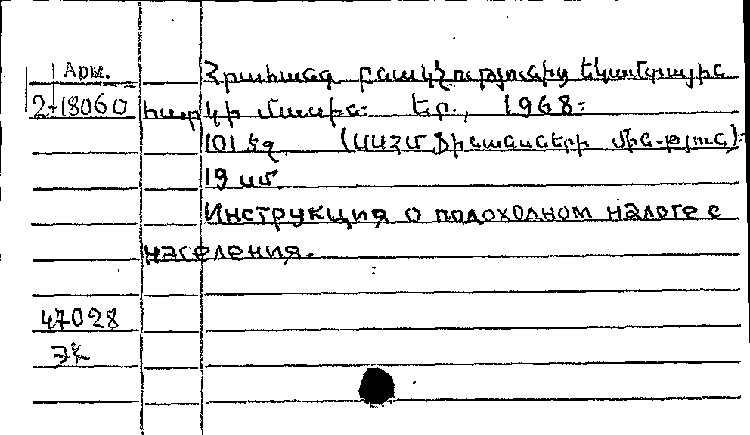 Арм.
2-18060
Հրահանգ բնակչությունից եկամտային
հարկի մասին։ Եր., 1968։
101 էջ (ՍՍՀՄ Ֆինանսների մին-թյուն)։
19 սմ
Инструкция о подоходном налоге с
населения.
47028